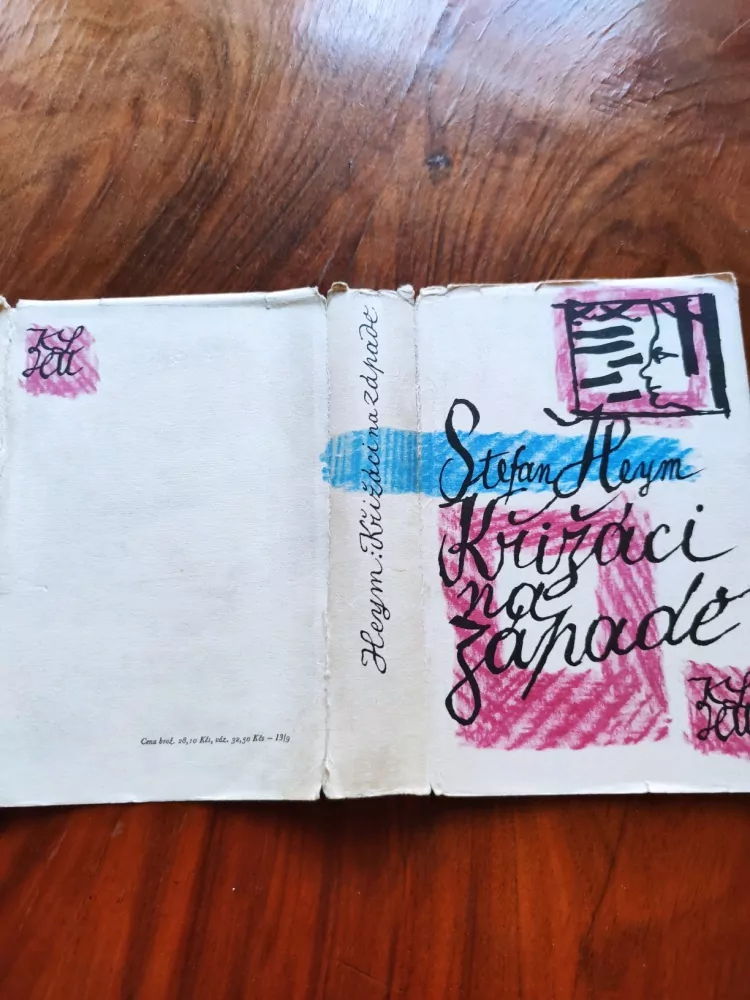 Cena brož. 28,10 Kčs, váz. 32,50 Kčs – 13/9
Heym: Křižáci na západě
Stefan Heym
Křižáci
na
západě